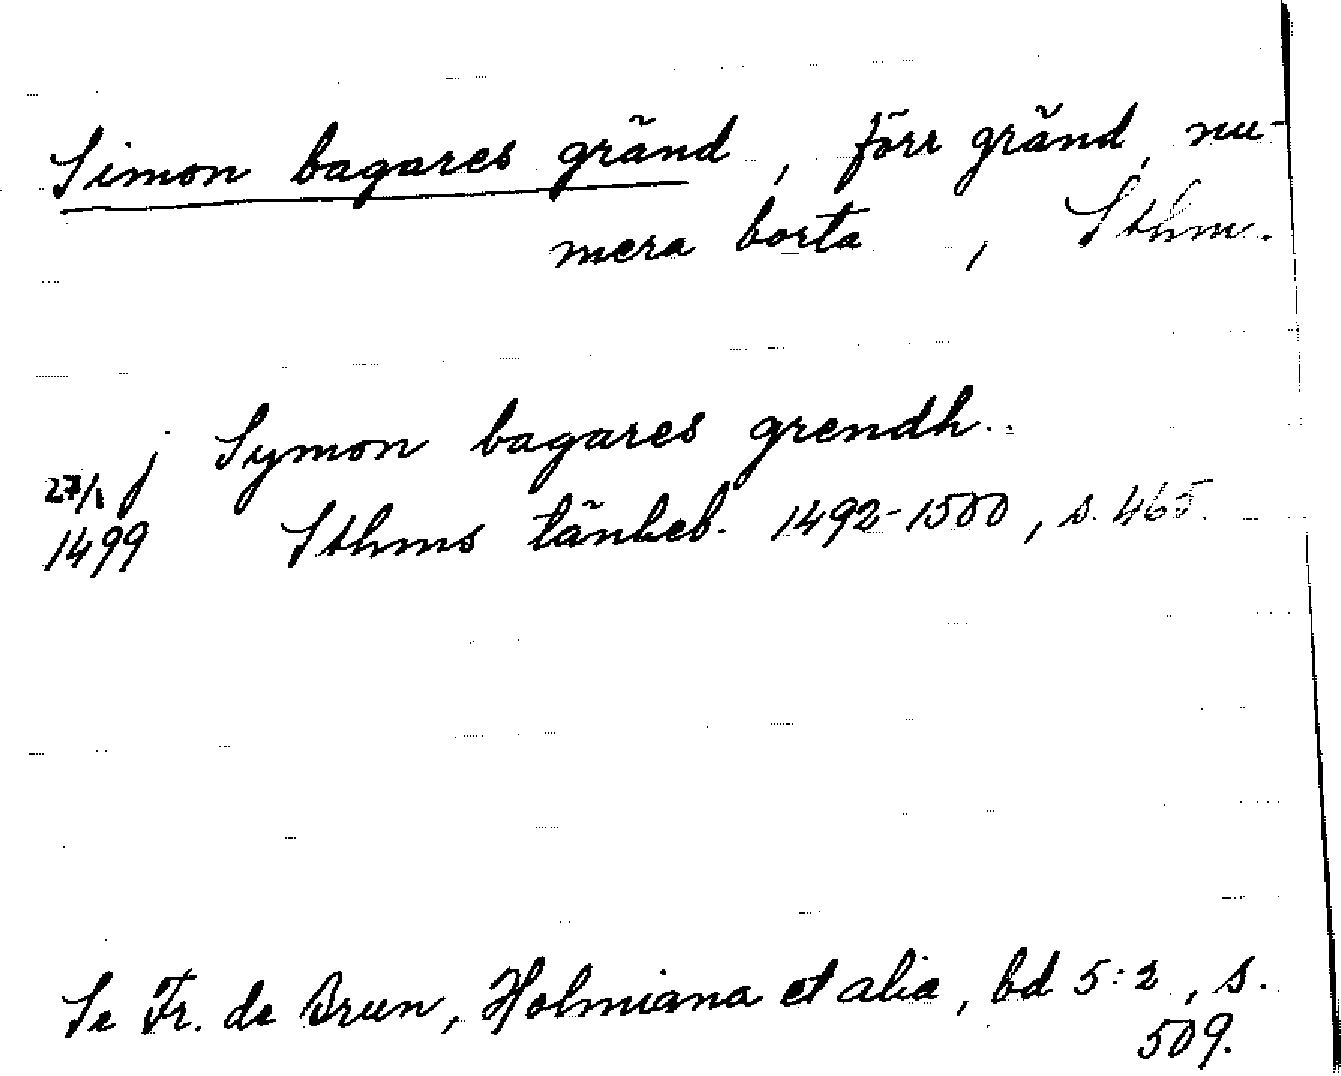 Simon bagares gränd, förr gränd, nu-
mera borta, Sthm.
j Symon bagares grendh.
27/1
1499 Sthms tänkeb. 1492-1500, s. 465.
Se Fr. de Brun, Holmiana et alia, bd 5:2, s.
509.